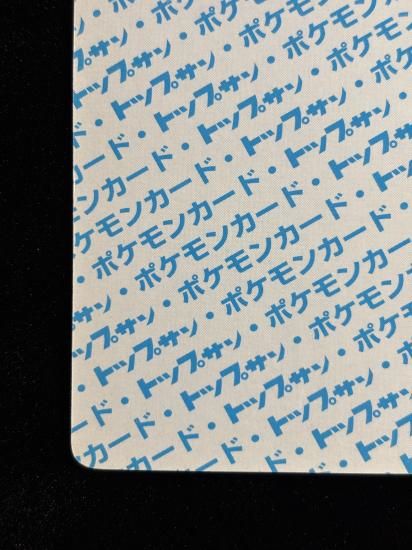 ード・
トップサン・ポケモン
ド・トップサン・ポケモンカ
カード・トップサン・ポケモ
ンカード・トップサン・ポケ
モンカード・トップサン・
ケモンカード・トップサン
ポケモンカード・トップ
・ポケモンカード・
・ポケモンカード・
ン・ポケモンカード
サン・ポケモンカ
トップサン・ポケモン
・トップサン・ポケモ
ード・トップサン・
カード・トップサン
カード・トップ